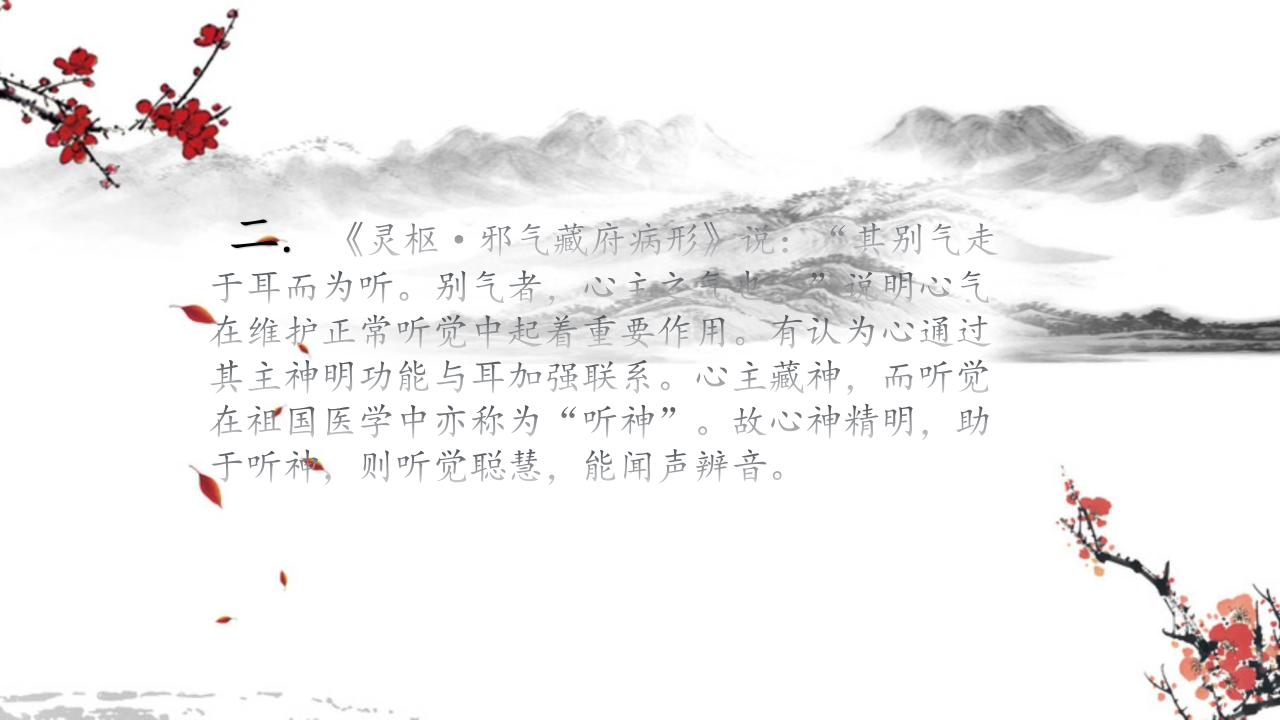 二. 《灵枢·邪气藏府病形》说：“其别气走
于耳而为听。别气者，心主之气也。”说明心气
在维护正常听觉中起着重要作用。有认为心通过
其主神明功能与耳加强联系。心主藏神，而听觉
在祖国医学中亦称为“听神”。故心神精明，助
于听神，则听觉聪慧，能闻声辨音。